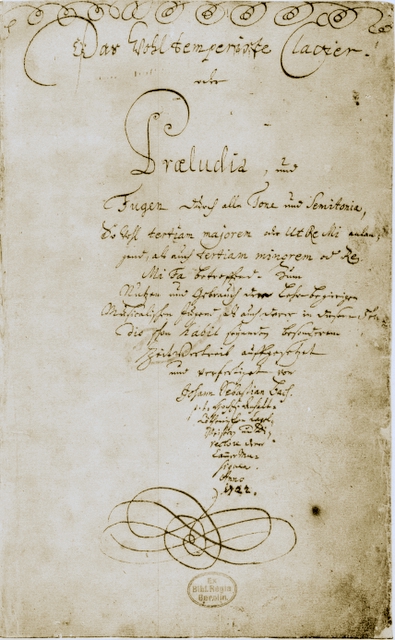 Das Wohltemperirte Clavier.
oder
Præludia, und
Fugen durch alle Tone und Semitonia,
So wohl tertiam majorem oder Ut Re Mi anlan-
gend, als auch tertiam minorem oder Re
Mi Fa betreffend. Zum
Nutzen und Gebrauch der Lehrbegierigen
Musicalischen Jugend, als auch derer in diesem
die schon habil seyenden besonderem
Zeitvertreib auffgesetzet
und verfertiget von
Johann Sebastian Bach.
p. t. Hochfürstlich
Cöthenischen Capel-
Meistern und Di-
rectore derer
Cammer Mu-
siquen.
Anno
1722.
Ex
Bibl. Regia
Berolin.